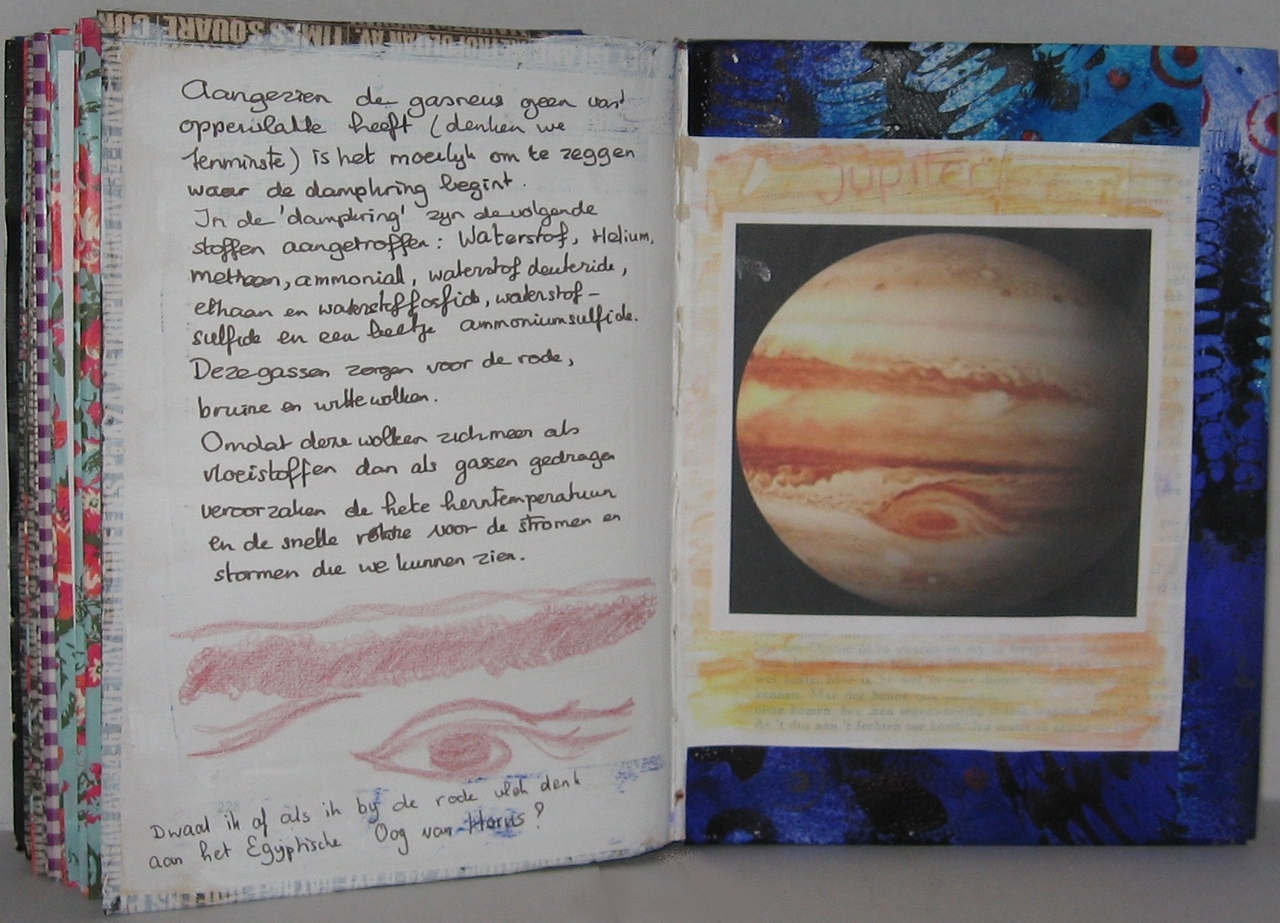 TIMES SQUARE
Aangezien de gasreus geen vast
oppervlakte heeft (denken we
tenminste) is het moeilijk om te zeggen
waar de dampkring begint.
In de 'dampkring' zijn de volgende
stoffen aangetroffen: Waterstof, Helium,
methaan, ammoniak, waterstof deuteride,
ethaan en waterstoffosfide, waterstof-
sulfide en een beetje ammoniumsulfide.
Deze gassen zorgen voor de rode,
bruine en witte wolken.
Omdat deze wolken zich meer als
vloeistoffen dan als gassen gedragen
veroorzaken de hete kerntemperatuur
en de snelle rotatie voor de stromen en
stormen die we kunnen zien.
Dwaal ik af als ik bij de rode vlek denk
aan het Egyptische Oog van Horus?
Jupiter